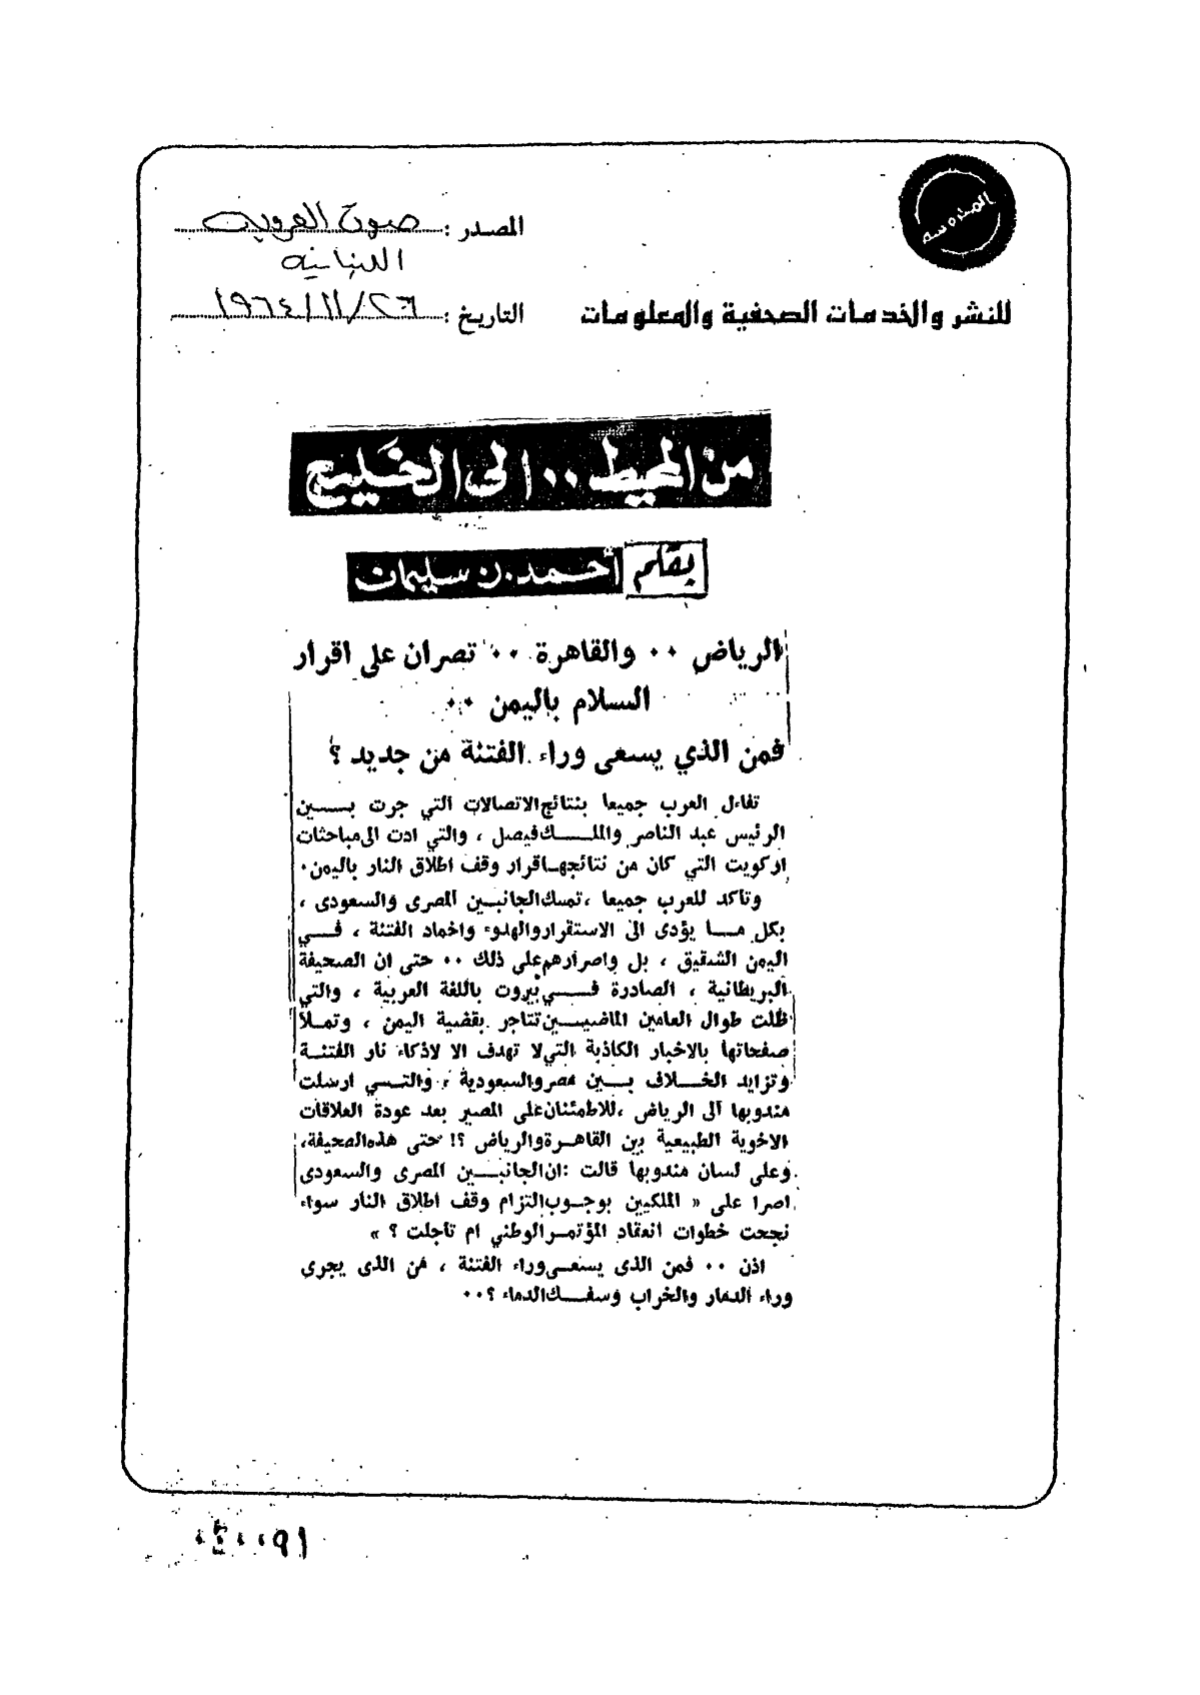 المصدر : صوت العروبة
اللبنانيه
للنشر والخدمات الصحفية والمعلومات
التاريخ : ٢٦/١١/١٩٦٤
من المحيط ٠٠ الى الخليج
بقلم أحمد بن سليمان
الرياض ٠٠ والقاهرة ٠٠ تصران على اقرار
السلام باليمن ٠٠
فمن الذي يسعى وراء الفتنة من جديد ؟
تفاءل العرب جميعا بنتائج الاتصالات التي جرت بين
الرئيس عبد الناصر والملك فيصل ، والتي ادت الى مباحثات
اركويت التي كان من نتائجها قرار وقف اطلاق النار باليمن ٠
وتاكد للعرب جميعا ، تمسك الجانبين المصرى والسعودى ،
بكل ما يؤدى الى الاستقرار والهدوء واخماد الفتنة ، في
اليمن الشقيق ، بل واصرارهم على ذلك ٠٠ حتى ان الصحيفة
البريطانية ، الصادرة في بيروت باللغة العربية ، والتي
ظلت طوال العامين الماضيين تتاجر بقضية اليمن ، وتملأ
صفحاتها بالاخبار الكاذبة التي لا تهدف الا لاذكاء نار الفتنة
وتزايد الخلاف بين مصر والسعودية ، والتي ارسلت
مندوبها الى الرياض ، للاطمئنان على المصير بعد عودة العلاقات
الاخوية الطبيعية بين القاهرة والرياض ؟! حتى هذه الصحيفة ،
وعلى لسان مندوبها قالت : ان الجانبين المصرى والسعودى
اصرا على « الملكيين بوجوب التزام وقف اطلاق النار سواء
نجحت خطوات انعقاد المؤتمر الوطني ام تأجلت ؟ »
اذن ٠٠ فمن الذى يسعى وراء الفتنة ، من الذى يجرى
وراء الدمار والخراب وسفك الدماء ؟ ٠٠